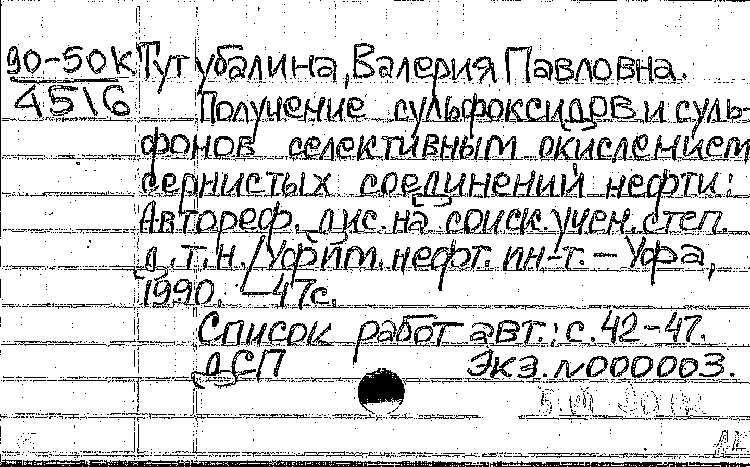 90-50К Тутубалина, Валерия Павловна.
4516 Получение сульфоксидов и суль-
фонов селективным окислением
сернистых соединений нефти:
Автореф. дис. на соиск. учен. степ.
д.т.н. / Уфим. нефт. ин-т. — Уфа,
1990. — 47с.
Список работ авт.: с. 42-47.
ДСП Экз. №000003.